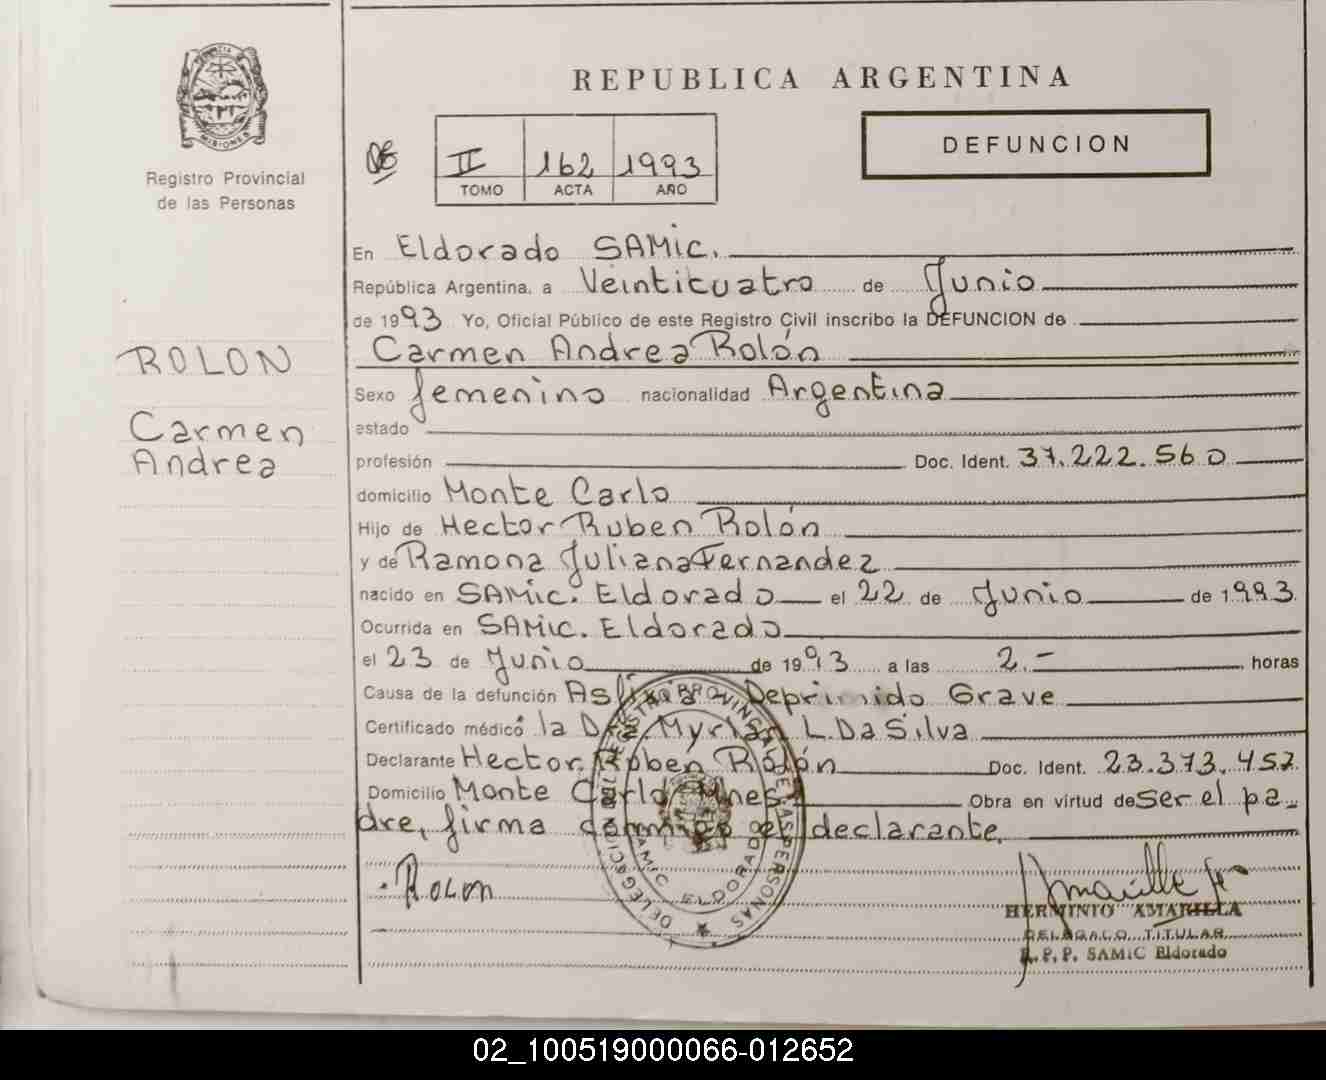 REPUBLICA ARGENTINA
MISIONES
Registro Provincial
de las Personas
II 162 1993
TOMO ACTA AÑO
DEFUNCION
ROLON
Carmen
Andrea
En Eldorado SAMic.
República Argentina, a Veinticuatro de Junio
de 1993 Yo, Oficial Público de este Registro Civil inscribo la DEFUNCION de
Carmen Andrea Rolón
Sexo femenino nacionalidad Argentina
estado
profesión Doc. Ident. 37.222.560
domicilio Monte Carlo
Hijo de Hector Ruben Rolón
y de Ramona Juliana Fernandez
nacido en SAMic. Eldorado el 22 de Junio de 1993
Ocurrida en SAMic. Eldorado
el 23 de Junio de 1993 a las 2.- horas
Causa de la defunción Deprimido Grave
Certificado médico la Dra. Myrian L. Da Silva
Declarante Hector Ruben Rolón Doc. Ident. 23.373.457
Domicilio Monte Carlo Mnes Obra en virtud de ser el pa_
dre, firma el declarante.
REGISTRO PROVINCIAL DE LAS PERSONAS
DELEGACION
SAMIC ELDORADO
Rolon
HERMINIO AMARILLA
DELEGADO TITULAR
R. P. P. SAMiC Eldorado
02_100519000066-012652